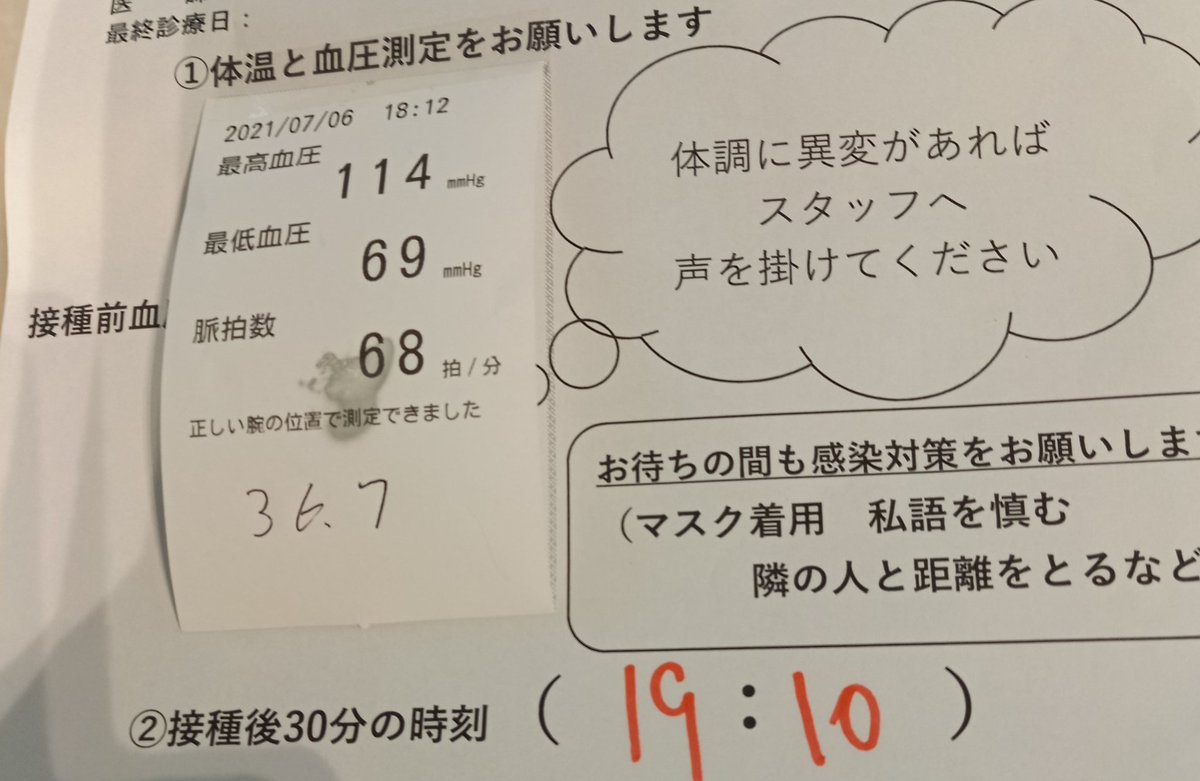 最終診療日：
①体温と血圧測定をお願いします
2021/07/06 18:12
最高血圧 114 mmHg
最低血圧 69 mmHg
脈拍数 68 拍/分
正しい腕の位置で測定できました
36.7
接種前血
体調に異変があれば
スタッフへ
声を掛けてください
お待ちの間も感染対策をお願いしま
（マスク着用　私語を慎む
隣の人と距離をとるなど
②接種後30分の時刻 （ 19：10 ）